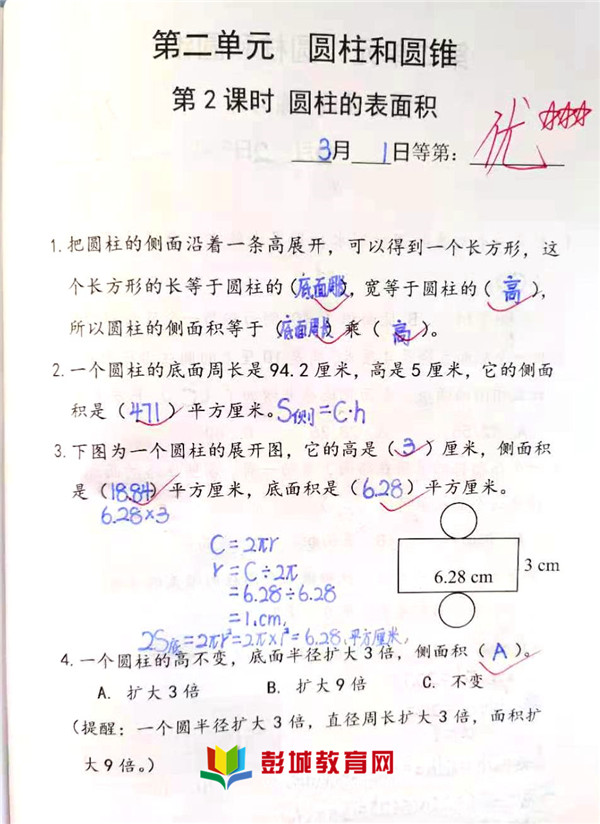 第二单元 圆柱和圆锥
第2课时 圆柱的表面积
3月 1日等第：优
1.把圆柱的侧面沿着一条高展开，可以得到一个长方形，这
个长方形的长等于圆柱的（底面周长），宽等于圆柱的（高），
所以圆柱的侧面积等于（底面周长）乘（高）。
2.一个圆柱的底面周长是94.2厘米，高是5厘米，它的侧面
积是（471）平方厘米。S侧=C·h
3.下图为一个圆柱的展开图，它的高是（3）厘米，侧面积
是（18.84）平方厘米，底面积是（6.28）平方厘米。
6.28×3
C=2πr
r=C÷2π
=6.28÷6.28
=1.cm,
3 cm
6.28 cm
2S底=2πr²=2π×1²=6.28,平方厘米,
4.一个圆柱的高不变，底面半径扩大3倍，侧面积（A）。
A. 扩大3倍 B. 扩大9倍 C. 不变
（提醒：一个圆半径扩大3倍，直径周长扩大3倍，面积扩
大9倍。）
彭城教育网